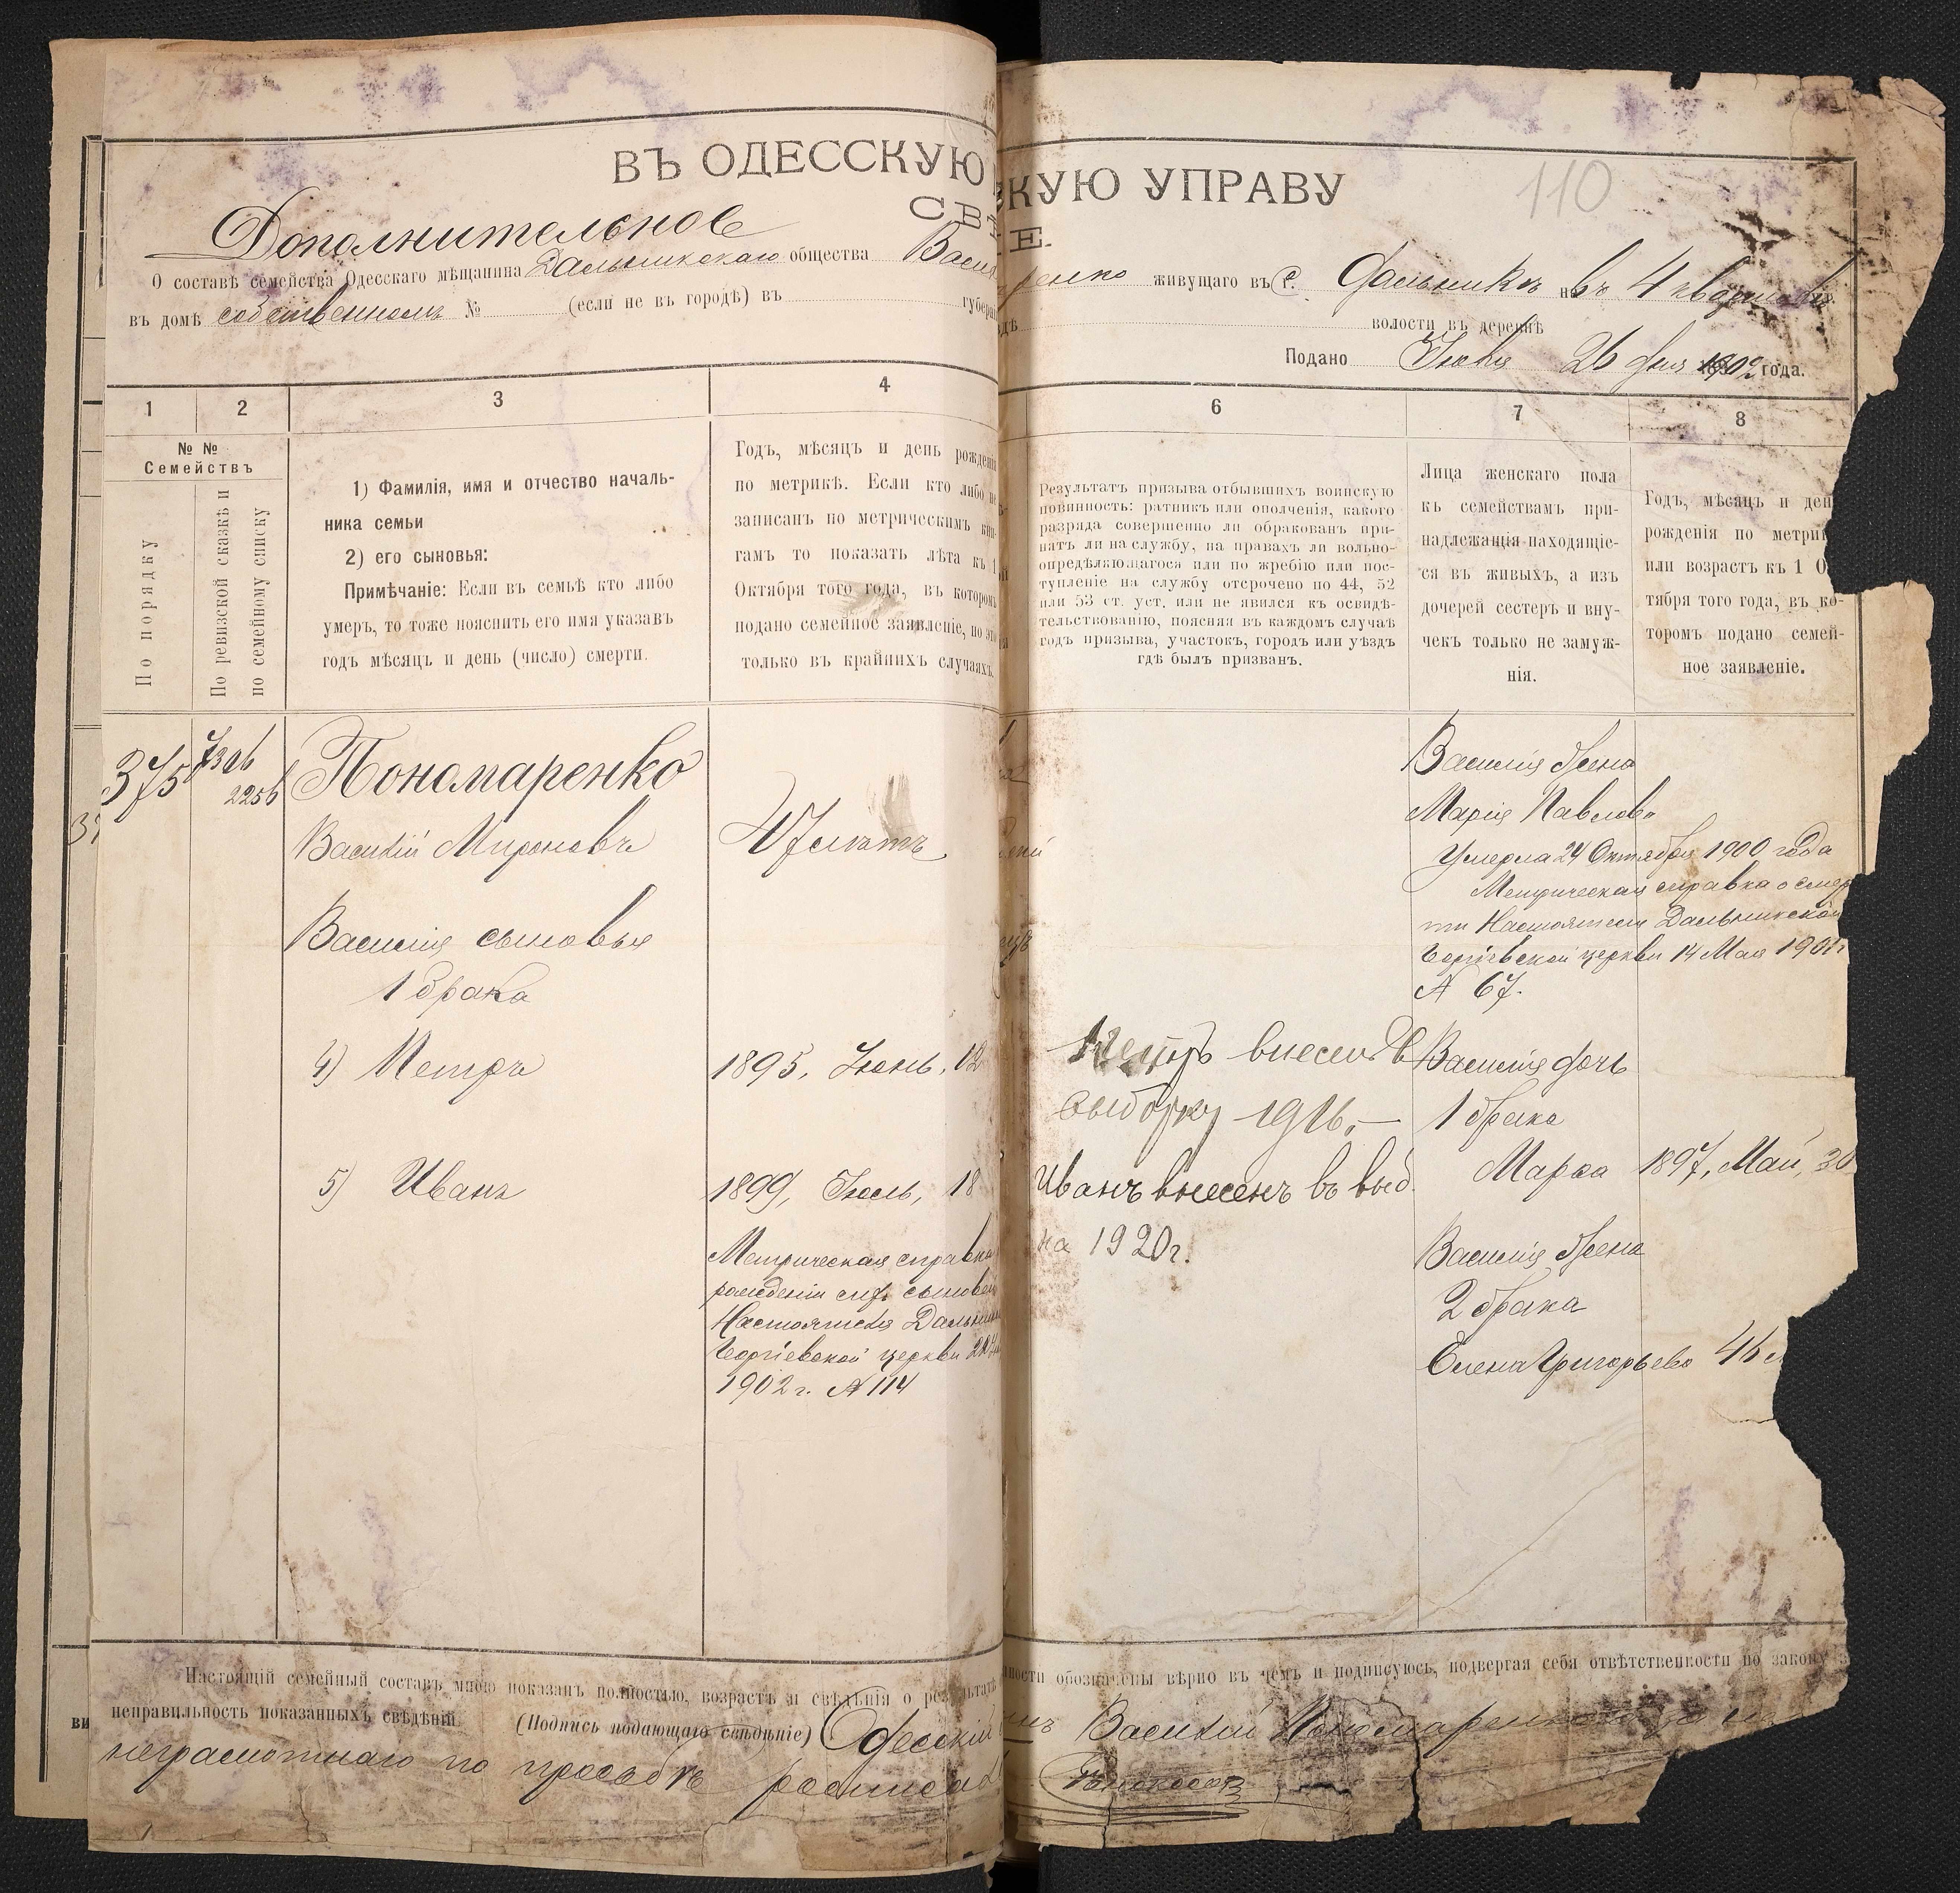 110
ВЪ ОДЕССКУЮ
СКУЮ УПРАВУ
Дополнительное
СВѢ
Е.
О составѣ семейства Одесскаго мѣщанина Дальникскаго общества Васил
ренко живущаго въ с. Дальникъ въ 4 кварталѣ
въ домѣ собственномъ № (если не въ городѣ) въ губерні
здѣ волости въ деревнѣ
Подано Іюня 26 дня 1902 года.
1
2
3
4
6
7
8
№ №
Семействъ
По порядку
По ревизской сказкѣ и
по семейному списку
1) Фамилія, имя и отчество началь-
ника семьи
2) его сыновья:
Примѣчаніе: Если въ семьѣ кто либо
умеръ, то тоже пояснить его имя указавъ
годъ мѣсяцъ и день (число) смерти.
Годъ, мѣсяцъ и день рожденія
по метрикѣ. Если кто либо не
записанъ по метрическимъ кни-
гамъ то показать лѣта къ 1
Октября того года, въ которомъ
подано семейное заявленіе, но это
только въ крайнихъ случаяхъ.
Результатъ призыва отбывшихъ воинскую
повинность: ратникъ или ополченія, какого
разряда совершенно ли обракованъ при-
нятъ ли на службу, на правахъ ли вольно-
опредѣляющагося или по жребію или пос-
тупленіе на службу отсрочено по 44, 52
или 53 ст. уст. или не явился къ освидѣ-
тельствованію, поясняя въ каждомъ случаѣ
годъ призыва, участокъ, городъ или уѣздъ
гдѣ былъ призванъ.
Лица женскаго пола
къ семействамъ при-
надлежащія находящіе-
ся въ живыхъ, а изъ
дочерей сестеръ и вну-
чекъ только не замуж-
нія.
Годъ, мѣсяцъ и ден
рожденія по метрик
или возрастъ къ 1 О
тября того года, въ ко-
торомъ подано семей-
ное заявленіе.
375
2256
Пономаренко
Василій Мироновъ
47 лѣтъ
Василія сыновья
1 брака
4) Петръ
1895, Іюнь, 12
5) Иванъ
1899, Іюль, 18
Метрическая справка
рожденіи сихъ сыновей
Настоятеля Дальник
Георгіевской церкви
1902 г. № 114
Петръ внесенъ в
выборку 1916.—
Иванъ внесенъ въ выб.
на 1920 г.
Василія жена
Марія Павлов
Умерла 24 Октября 1900 года
Метрическая справка о смер
ти Настоятеля Дальникской
Георгіевской церкви 14 Мая 1901 г
№ 67.
Василія дочь
1 брака
Марфа 1897, Май, 30
Василія жена
2 брака
Елена Григорьева 46 л
Настоящій семейный составъ мною показанъ полностью, возрастъ и свѣдѣнія о результатѣ
нности обозначены вѣрно въ чемъ и подписуюсь, подвергая себя отвѣтственности по закону з
неправильность показанныхъ свѣдѣній. (Подпись подающаго свѣдѣніе) Одесскій
нъ Василій Пономаренко за не
неграмотнаго по просьбѣ росписал